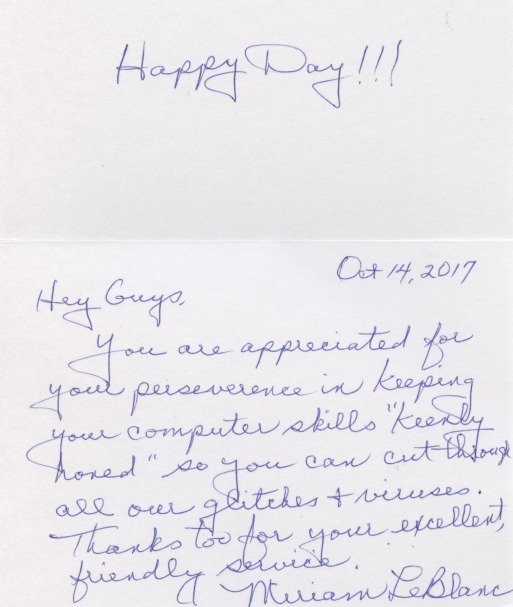 Happy Day!!!
Oct 14, 2017
Hey Guys,
You are appreciated for
your perseverence in keeping
your computer skills "keenly
honed" so you can cut through
all our glitches + viruses.
Thanks too for your excellent,
friendly service.
Miriam LeBlanc